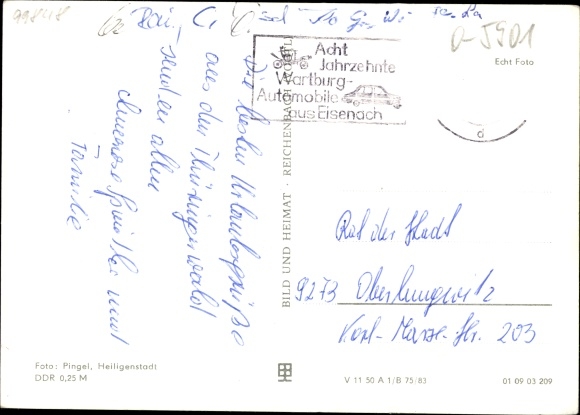 99848
D-5901
Acht
Jahrzehnte
Wartburg-
Automobile
aus Eisenach
Echt Foto
d
Die besten Urlaubsgrüße
aus dem Thüringerwald
senden allen
und
Familie
BILD UND HEIMAT · REICHENBACH
Rat der Stadt
9273 Oberlungwitz
Karl-Marx-Str. 203
Foto: Pingel, Heiligenstadt
DDR 0,25 M
V 11 50 A 1/B 75/83
01 09 03 209